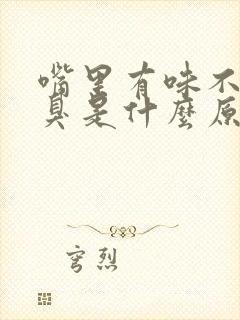 嘴里有味不
臭是什麼原
穹烈